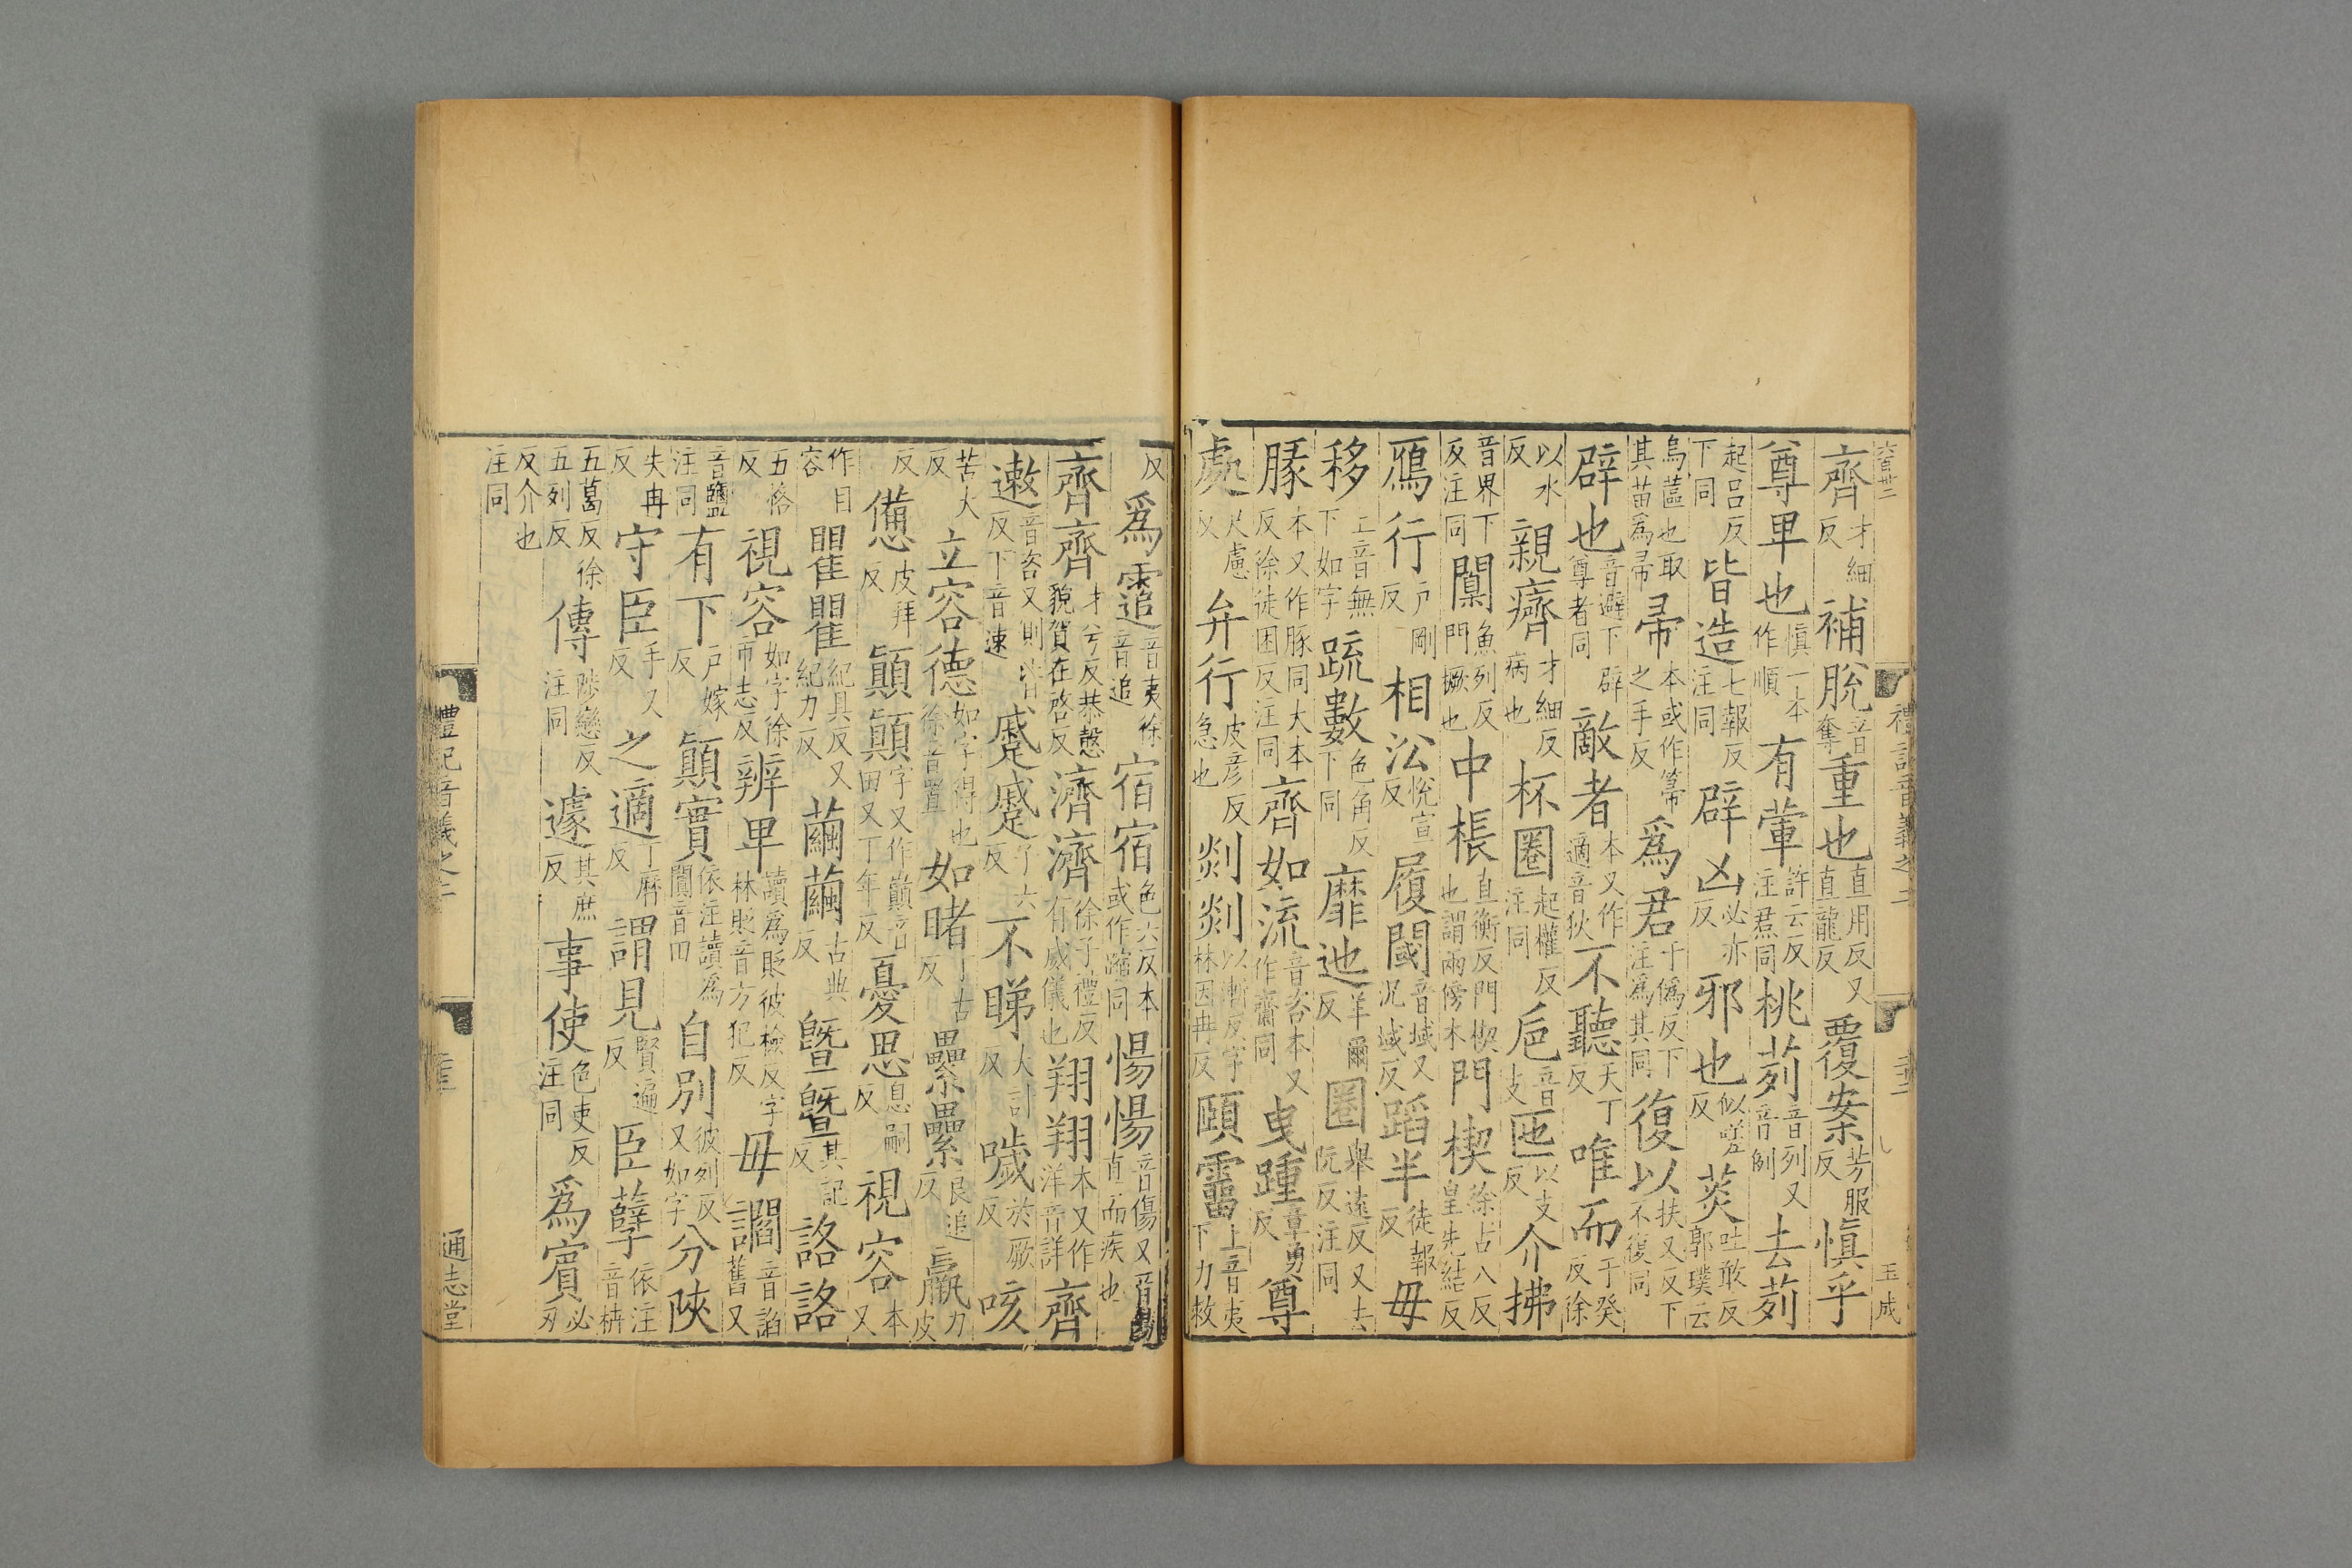 齊才細反補脫音奪重也直用反又直龍反覆案芳服反愼乎
尊卑也愼一本作順有葷許云反注焄同桃茢音列又音例去茢
起呂反下同皆造七報反注同辟凶必亦反邪也似嗟反菼吐敢反郭璞云
烏蓲也取其苗爲帚帚本或作箒之手反爲君于僞反下注爲其同復以扶又反下不復同
辟也音避下辟尊者同敵者本又作適音狄不聽天丁反唯而于癸反徐
以水反親癠才細反病也杯圈起權反注同巵音支匜以支反介拂
音界下反注同闑魚列反門橛也中棖直衡反門楔也謂兩傍木門楔徐古八反皇先結反
鴈行戶剛反相沿悅宣反履閾音域又況域反蹈半徒報反毋
移上音無下如字疏數色角反下同靡迆羊爾反圈舉遠反又去阮反注同
豚本又作豚同大本反徐徒困反注同齊如流音咨本又作齋同曳踵章勇反尊
處尺慮反弁行皮彦反急也剡剡以漸反字林因冉反頤霤上音夷下力救
反爲霤音夷徐音追宿宿色六反本或作縮同惕惕音傷又音陽直而疾也
齊齊才兮反恭慤貌賀在啓反濟濟徐子禮反有威儀也翔翔本又作洋音詳齊
遬音咨又側皆反下音速蹙蹙子六反不睇大計反噦於厥反咳
苦大反立容德如字得也徐音置如睹丁古反纍纍良追反羸力皮
反憊皮拜反顚顚字又作巔音田又丁年反憂思息嗣反視容本又
作目容瞿瞿紀具反又紀力反繭繭古典反曁曁其記反詻詻
五格反視容如字徐市志反辨卑讀爲貶彼檢反字林貶音方犯反毋讇音諂舊又
音鹽注同有下戶嫁反顚實依注讀爲闐音田自別彼列反又如字分陝
失冉反守臣手又反之適丁厤反謂見賢遍反臣孽依注音枿
五葛反徐五列反傳陟戀反注同遽其庶反事使色吏反注同爲賓必刃
反介也注同
禮記音義之二
通志堂
禮記音義之二
玉成